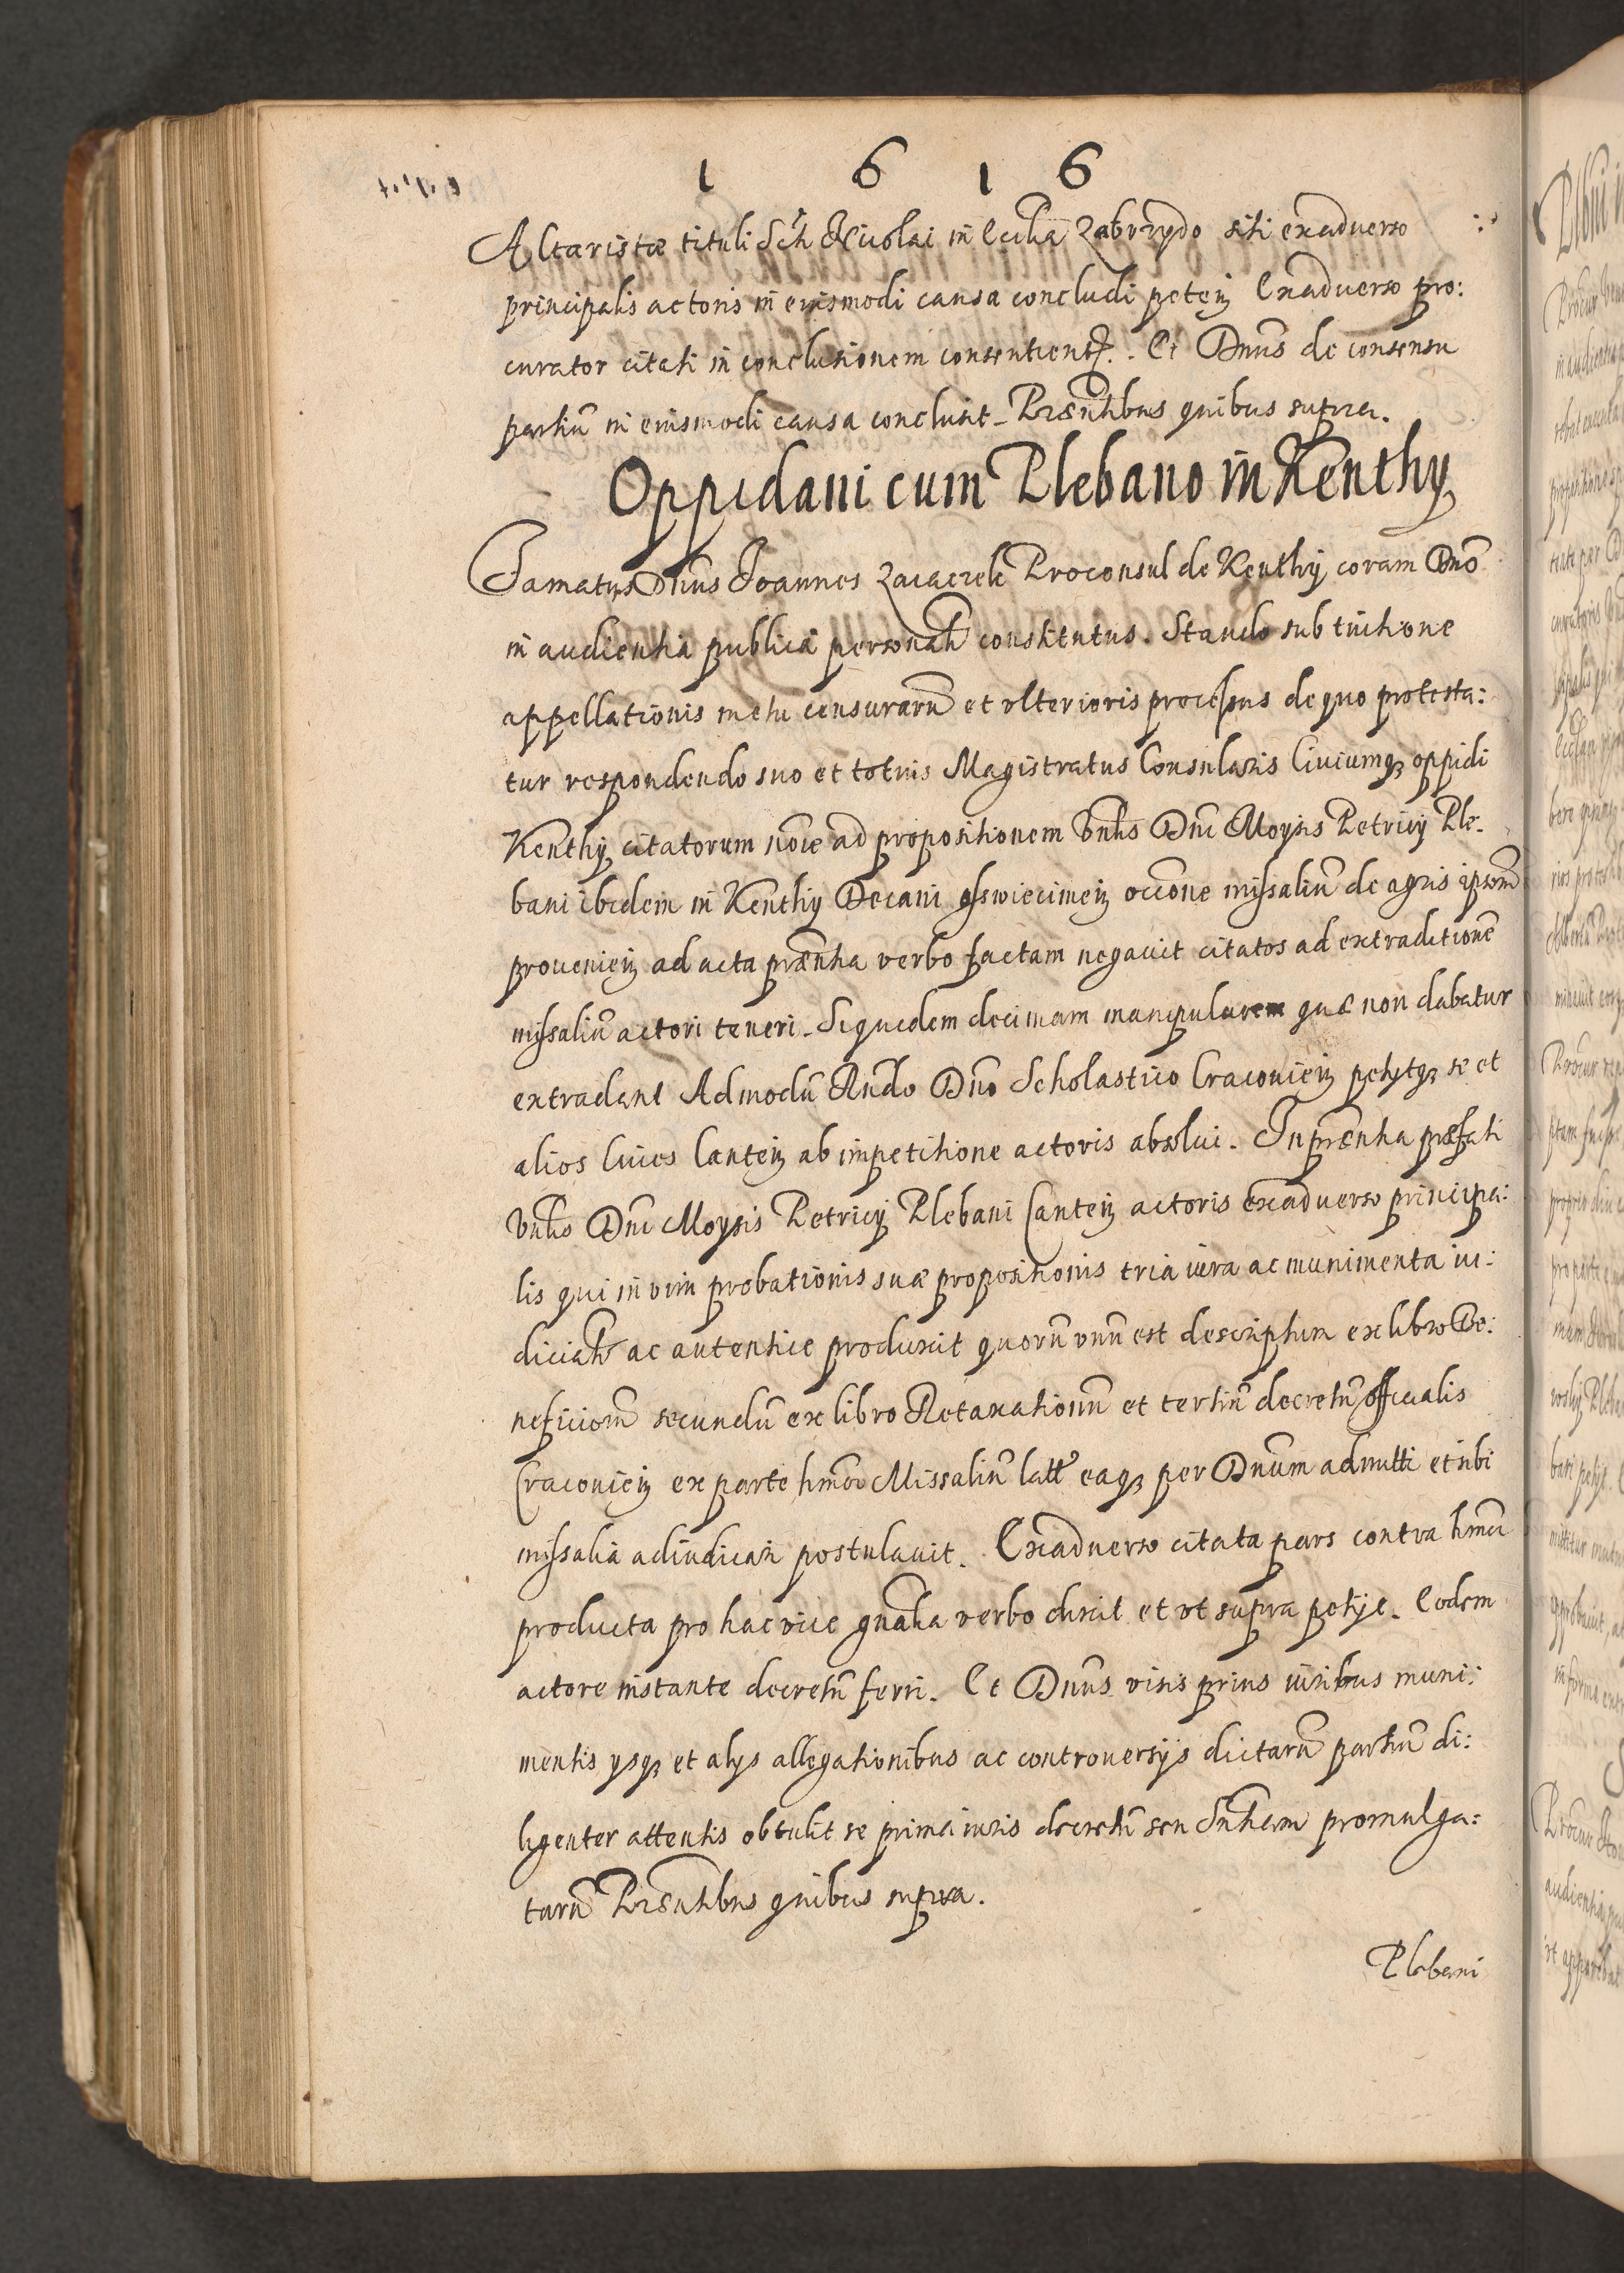 1 6 1 6
Altaristæ tituli Scti Nicolai in Ecclia siti exaduerso
principalis actoris in eiusmodi causa concludi peteñ Exaduerso pro:
curator citati in conclusionem consentient. Et Dnus de consensu
partiū in eiusmodi causa conclusit. Præntibus quibus supra.
Oppidani cum Plebano in Kenthÿ
Famatus Dnus Joannes Proconsul de Kenthÿ coram Dno
in audientia publica personalr constitutus. Stando sub tuitione
appellationis metu censurarū et vlterioris processus de quo protesta:
tur respondendo suo et totius Magistratus Consularis Ciuiumq₃ oppidi
Kenthÿ citatorum noie ad propositionem Vnlis Dni Moysis Petricÿ Ple-
bani ibidem in Kenthÿ Decani Oswiecimeñ occōne missaliū de agris ipsorū
proueniēñ ad acta prænтia verbo factam negauit citatos ad extraditionē
missaliū actori teneri. Siquidem decimam manipularem quæ non dabatur
extradant Admodū Rndo Dno Scholastico Cracouieñ petÿtq₃ se et
alios Ciues Canteñ ab impetitione actoris absolui. In præntia præfati
Vnlis Dni Moysis Petricÿ Plebani Canteñ actoris exaduerso principa:
lis qui in vim probationis suæ propositionis tria iura ac munimenta iu:
dicialr ac autentice produxit quorū vnū est descriptum ex libro Be:
neficiorū secundū ex libro Retaxationū et tertiū decretū officialis
Cracouieñ ex parte hmōi Missaliū latū eaq₃ per Dnum admitti et sibi
missalia adiudicari postulauit. Exaduerso citata pars contra hmōi
producta pro hac vice gnalia verbo dixit et vt supra petÿt. Eodem
actore instante decretū ferri. Et Dnus visis prius iuribus muni:
mentis ÿsq₃ et alÿs allegationibus ac controuersÿs dictarū partiū di:
ligenter attentis obtulit se prima iuris decretū seu Sntiam promulga:
turū Præntibus quibus supra.
Plebani